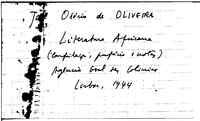 Osório de OLIVEIRA
Literatura Africana
(Compilação, prefácio e notas)
Agência Geral das Colónias
Lisboa, 1944